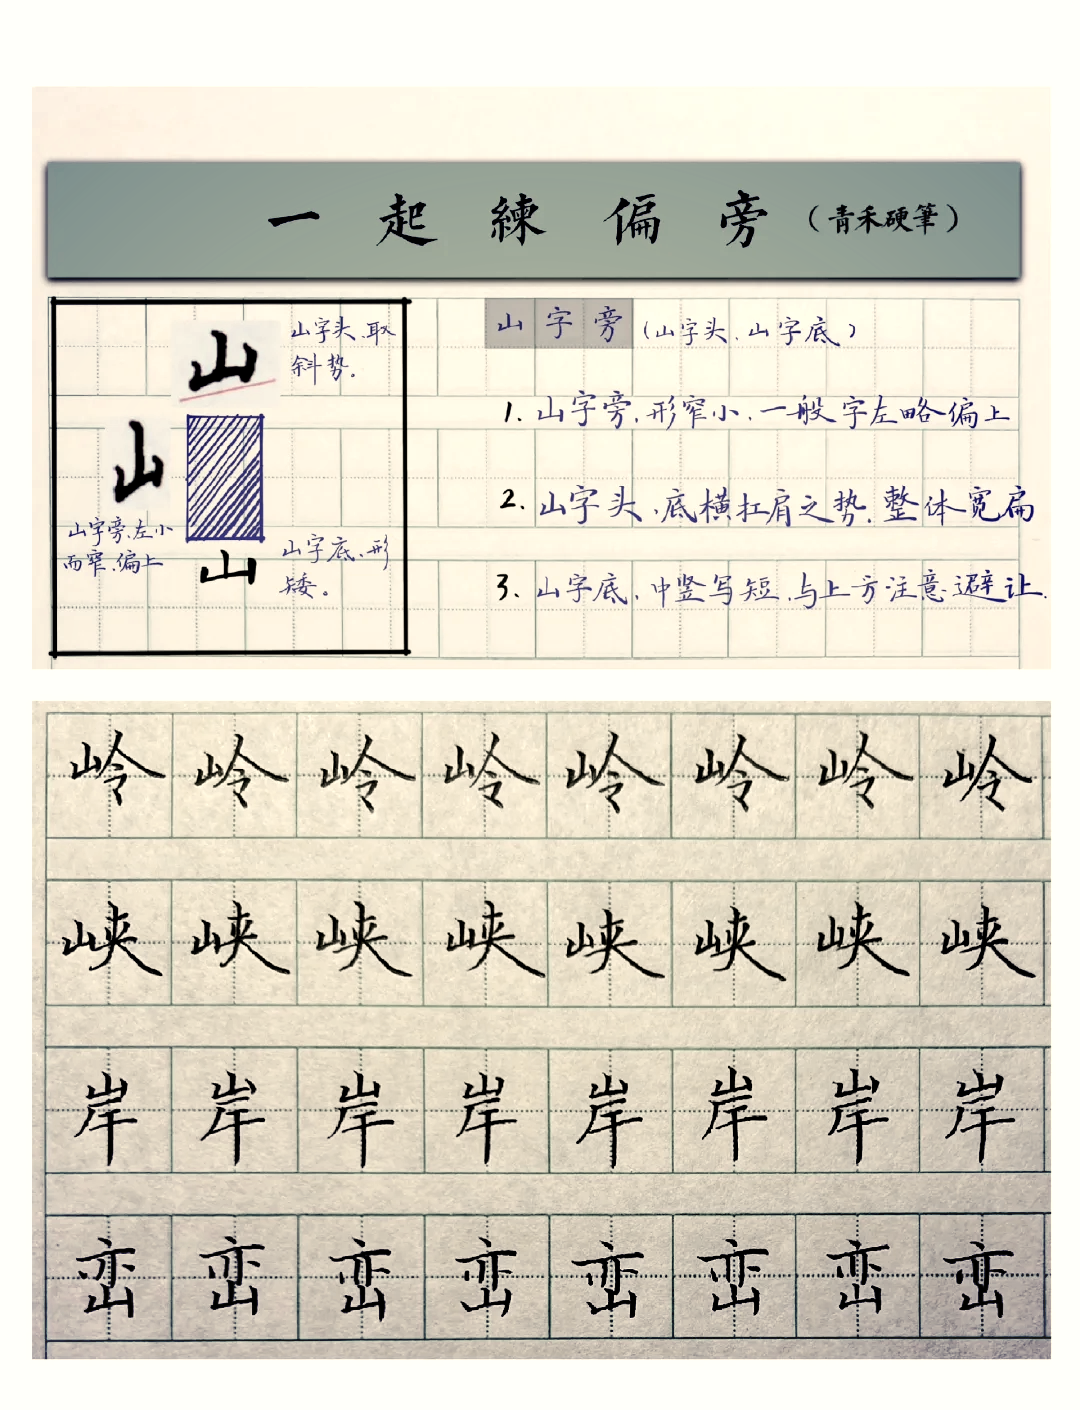 一起練偏旁（青禾硬筆）
山
山字头、取
斜势。
山
山字旁、左小
而窄、偏上
山字底、形
矮。
山
山字旁（山字头、山字底）
1. 山字旁、形窄小、一般字左略偏上
2. 山字头、底横扛肩之势、整体宽扁
3. 山字底、中竖写短、与上方注意避让.
岭岭岭岭岭岭岭岭
峡峡峡峡峡峡峡峡
岸岸岸岸岸岸岸岸
峦峦峦峦峦峦峦峦